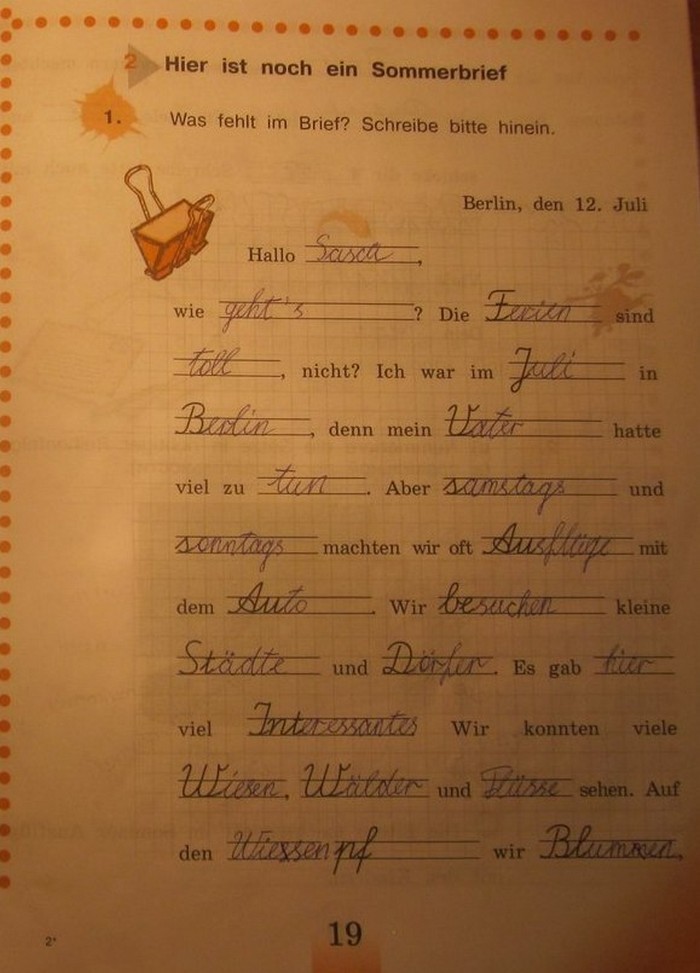 2 Hier ist noch ein Sommerbrief
1. Was fehlt im Brief? Schreibe bitte hinein.
Berlin, den 12. Juli
Hallo Sasca,
wie geht's? Die Ferien sind
toll, nicht? Ich war im Juli in
Berlin, denn mein Vater hatte
viel zu tun. Aber samstags und
sonntags machten wir oft Ausflüge mit
dem Auto. Wir besuchen kleine
Städte und Dörfer. Es gab hier
viel Interessantes Wir konnten viele
Wiesen, Wälder und Flüsse sehen. Auf
den Wiessen pf wir Blummen,
19
2*